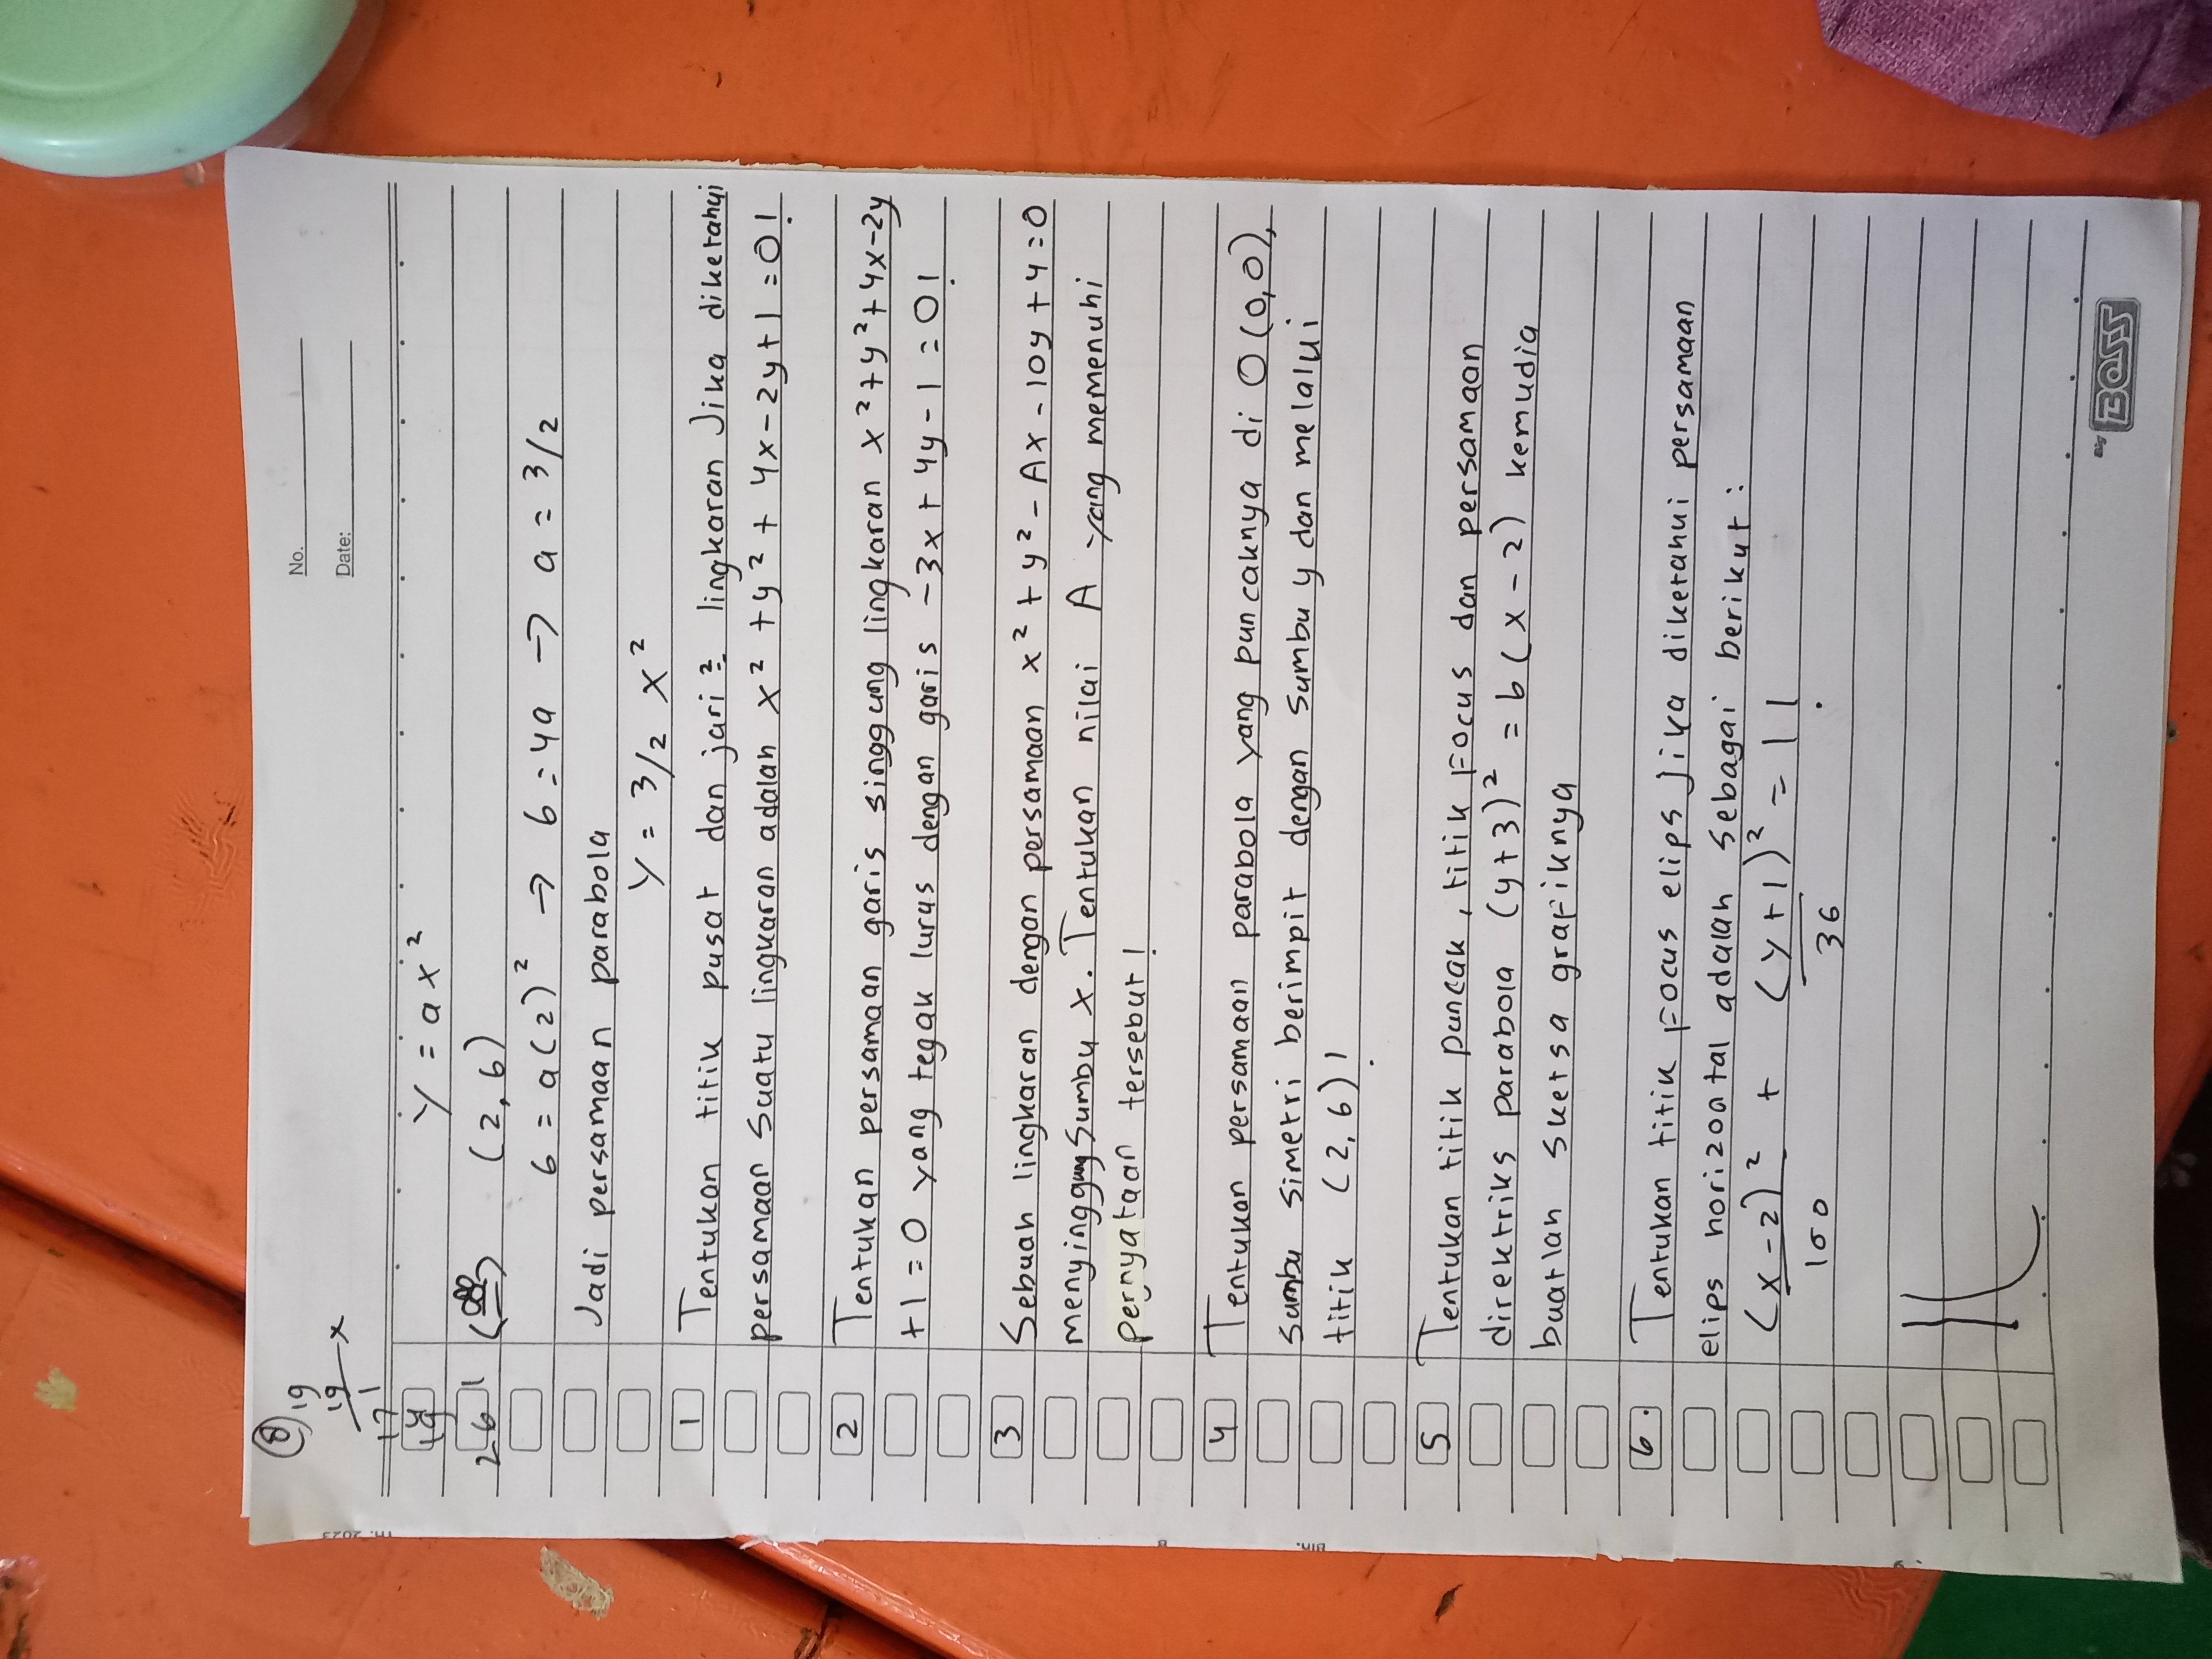 8
19
19 x
1
17
19
261
No.
Date:
y = ax²
(2,6)
6 = a(2)² → 6 = 4a → a = 3/2
Jadi persamaan parabola
y = 3/2 x²
1 Tentukan titik pusat dan jari² lingkaran Jika diketahui
persamaan suatu lingkaran adalah x² + y² + 4x - 2y + 1 = 0!
2 Tentukan persamaan garis singgung lingkaran x² + y² + 4x - 2y
+1 = 0 yang tegak lurus dengan garis -3x + 4y - 1 = 0!
3 Sebuah lingkaran dengan persamaan x² + y² - Ax - 10y + 4 = 0
menyinggung sumbu x. Tentukan nilai A yang memenuhi
pernyataan tersebut!
4 Tentukan persamaan parabola yang puncaknya di O(0,0),
sumbu simetri berimpit dengan sumbu y dan melalui
titik (2,6)!
5 Tentukan titik puncak, titik Focus dan persamaan
direktriks parabola (y+3)² = 6(x-2) kemudia
buatlah sketsa grafiknya
6. Tentukan titik Focus elips jika diketahui persamaan
elips horizontal adalah sebagai berikut :
(x-2)² + (y+1)² = 1!
100 36
Big BOSS